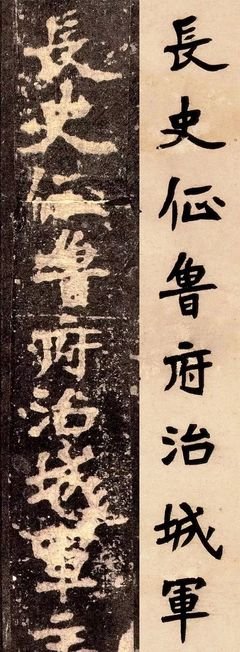 長史征魯府治城軍
長史征魯府治城軍